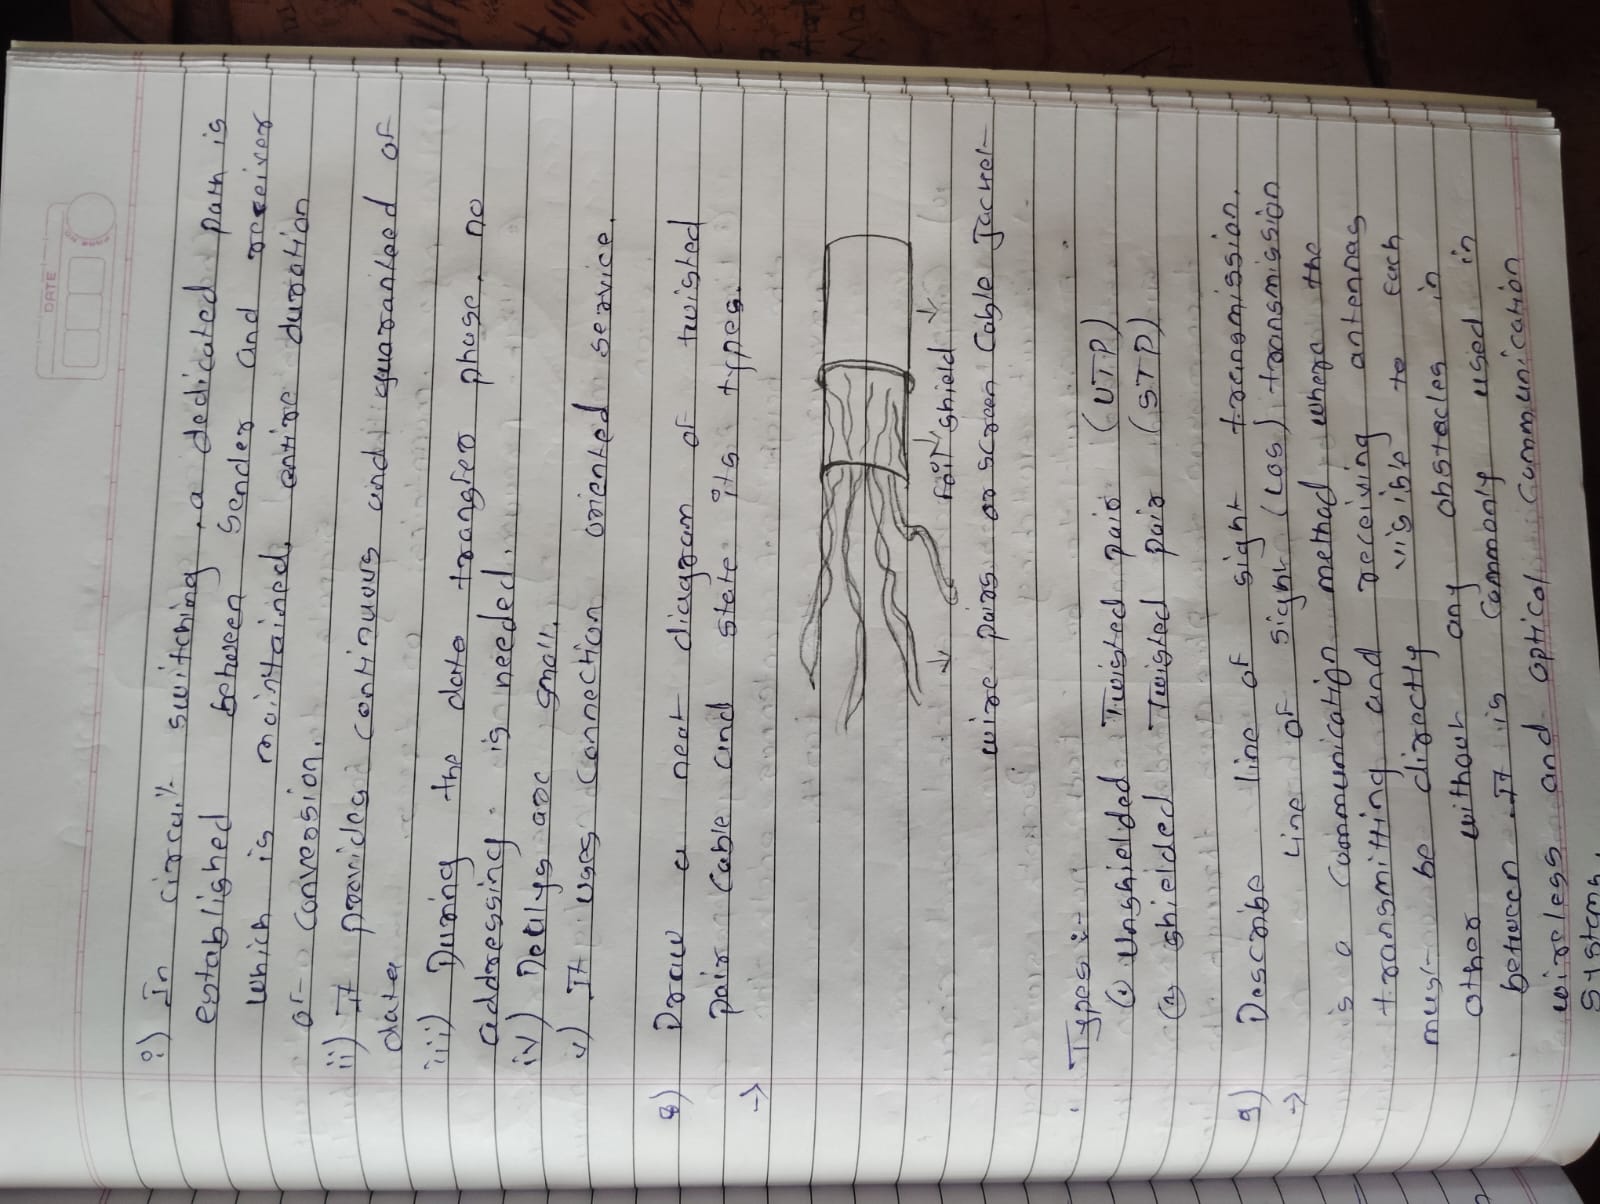 DATE
i) In circuit switching, a dedicated path is
established between sender and receiver
which is maintained, entire duration
of conversion.
ii) It provides continuous and guaranteed of
data
iii) During the data transfer phase, no
addressing is needed.
iv) Dealys are small.
v) It uses connection oriented service.
8) Draw a neat diagram of twisted
pair cable and state its types.
→
foil shield
wire pairs or screen Cable Jacket
Types :-
① Unshielded Twisted pair (UTP)
② shielded Twisted pair (STP)
9) Describe line of sight transmission.
→ Line of sight (LOS) transmission
is a communication method where the
transmitting and receiving antennas
must be directly visible to each
other without any obstacles in
between. It is commonly used in
wireless and optical communication
systems.